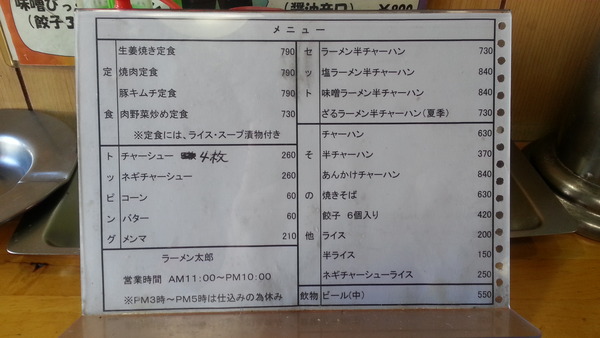 味噌ぴっ
(餃子3
(醤油辛口)
¥800
メニュー
定食
生姜焼き定食 790
焼肉定食 790
豚キムチ定食 790
肉野菜炒め定食 730
※定食には、ライス・スープ漬物付き
トッピング
チャーシュー 4枚 260
ネギチャーシュー 260
コーン 60
バター 60
メンマ 210
ラーメン太郎
営業時間 AM11:00～PM10:00
※PM3時～PM5時は仕込みの為休み
セット
ラーメン半チャーハン 730
塩ラーメン半チャーハン 840
味噌ラーメン半チャーハン 840
ざるラーメン半チャーハン(夏季) 730
その他
チャーハン 630
半チャーハン 370
あんかけチャーハン 840
焼きそば 630
餃子 6個入り 420
ライス 200
半ライス 150
ネギチャーシューライス 250
飲物
ビール(中) 550